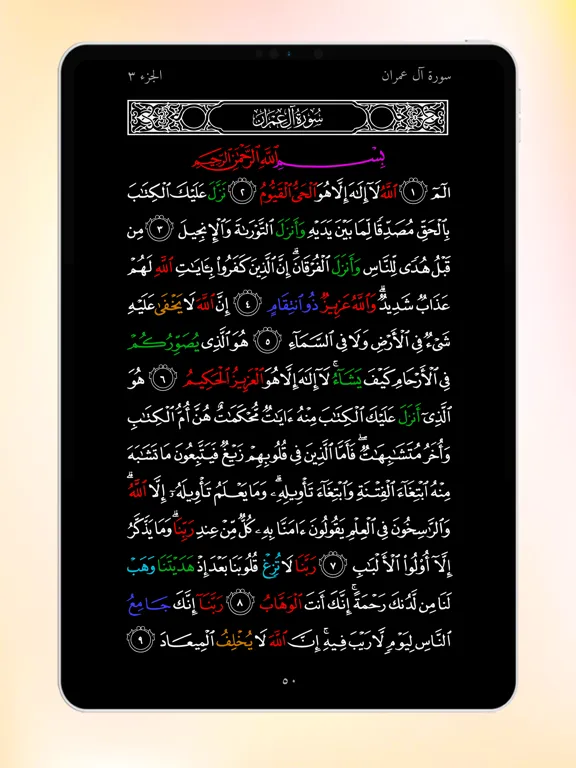 سورة آل عمران
الجزء ٣
سُورَةُ آلِ عِمْرَانَ
بِسْمِ ٱللَّهِ ٱلرَّحْمَٰنِ ٱلرَّحِيمِ
الٓمٓ ١ ٱللَّهُ لَآ إِلَٰهَ إِلَّا هُوَ ٱلْحَىُّ ٱلْقَيُّومُ ٢ نَزَّلَ عَلَيْكَ ٱلْكِتَٰبَ
بِٱلْحَقِّ مُصَدِّقًا لِّمَا بَيْنَ يَدَيْهِ وَأَنزَلَ ٱلتَّوْرَىٰةَ وَٱلْإِنجِيلَ ٣ مِن
قَبْلُ هُدًى لِّلنَّاسِ وَأَنزَلَ ٱلْفُرْقَانَۗ إِنَّ ٱلَّذِينَ كَفَرُواْ بِـَٔايَٰتِ ٱللَّهِ لَهُمْ
عَذَابٌ شَدِيدٌۗ وَٱللَّهُ عَزِيزٌ ذُو ٱنتِقَامٍ ٤ إِنَّ ٱللَّهَ لَا يَخْفَىٰ عَلَيْهِ
شَىْءٌ فِى ٱلْأَرْضِ وَلَا فِى ٱلسَّمَآءِ ٥ هُوَ ٱلَّذِى يُصَوِّرُكُمْ
فِى ٱلْأَرْحَامِ كَيْفَ يَشَآءُۚ لَآ إِلَٰهَ إِلَّا هُوَ ٱلْعَزِيزُ ٱلْحَكِيمُ ٦ هُوَ
ٱلَّذِىٓ أَنزَلَ عَلَيْكَ ٱلْكِتَٰبَ مِنْهُ ءَايَٰتٌ مُّحْكَمَٰتٌ هُنَّ أُمُّ ٱلْكِتَٰبِ
وَأُخَرُ مُتَشَٰبِهَٰتٌۖ فَأَمَّا ٱلَّذِينَ فِى قُلُوبِهِمْ زَيْغٌ فَيَتَّبِعُونَ مَا تَشَٰبَهَ
مِنْهُ ٱبْتِغَآءَ ٱلْفِتْنَةِ وَٱبْتِغَآءَ تَأْوِيلِهِۦۗ وَمَا يَعْلَمُ تَأْوِيلَهُۥٓ إِلَّا ٱللَّهُۗ
وَٱلرَّٰسِخُونَ فِى ٱلْعِلْمِ يَقُولُونَ ءَامَنَّا بِهِۦ كُلٌّ مِّنْ عِندِ رَبِّنَاۗ وَمَا يَذَّكَّرُ
إِلَّآ أُوْلُواْ ٱلْأَلْبَٰبِ ٧ رَبَّنَا لَا تُزِغْ قُلُوبَنَا بَعْدَ إِذْ هَدَيْتَنَا وَهَبْ
لَنَا مِن لَّدُنكَ رَحْمَةًۚ إِنَّكَ أَنتَ ٱلْوَهَّابُ ٨ رَبَّنَآ إِنَّكَ جَامِعُ
ٱلنَّاسِ لِيَوْمٍ لَّا رَيْبَ فِيهِۚ إِنَّ ٱللَّهَ لَا يُخْلِفُ ٱلْمِيعَادَ ٩
٥٠